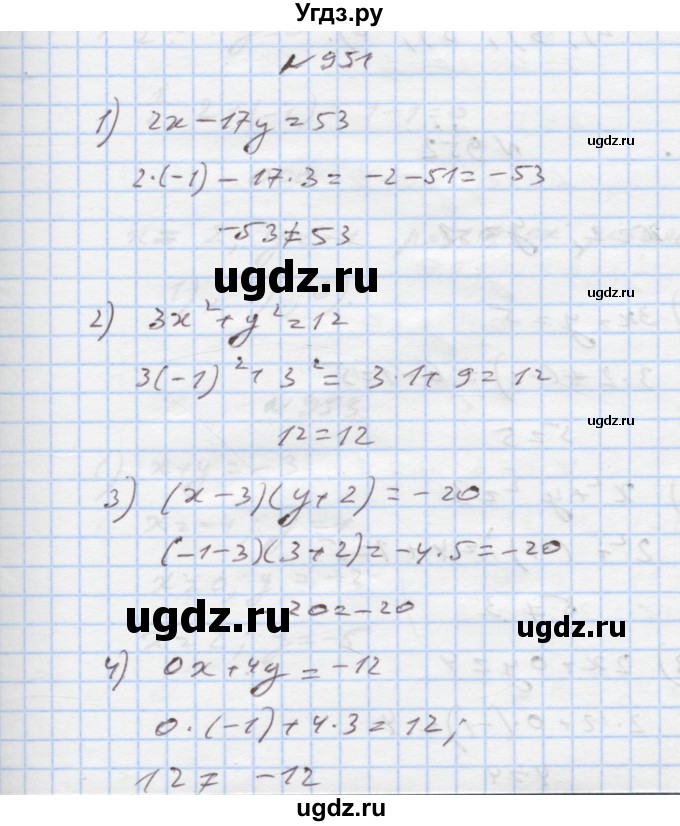 Угдз.ру
№ 951
1) 2x - 17y = 53
ugdz.ru
2·(-1) - 17·3 = -2 - 51 = -53
ugdz.ru
-53 ≠ 53
ugdz.ru
ugdz.ru
2) 3x² + y² = 12
3(-1)² + 3² = 3·1 + 9 = 12
ugdz.ru
12 = 12
3) (x - 3)(y + 2) = -20
(-1-3)(3+2) = -4·5 = -20
ugdz.ru
20 = -20
ugdz.ru
ugdz.ru
4) 0x + 4y = -12
0·(-1) + 4·3 = 12;
ugdz.ru
12 ≠ -12
ugdz.ru